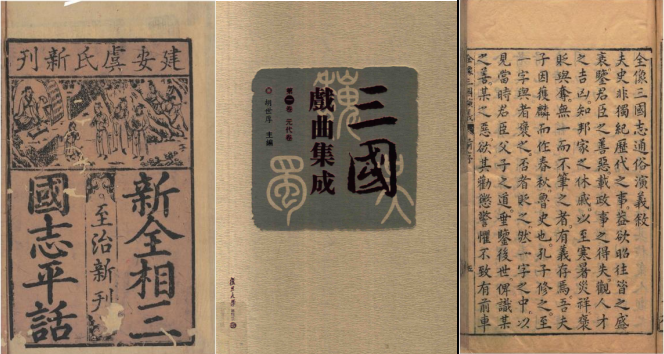 建安虞氏新刊
新全相三
至治新刊
國志平話
三國
戲曲集成
第一卷 元代卷
胡世厚 主編
魏
蜀
吳
全像三國志通俗演義敘
夫史非獨紀歷代之事蓋欲昭往昔之盛
衰鑒君臣之善惡載政事之得失觀人才
之吉凶知邦家之休戚以至寒暑災祥褒
貶與奪無一而不筆之者有義存焉吾夫
子因獲麟而作春秋魯史也孔子修之至
一字與者褒之否者貶之然一字之中以
見當時名臣父子之道垂鑒後世俾識某
之善某之惡欲其勸懲警懼不致有前車